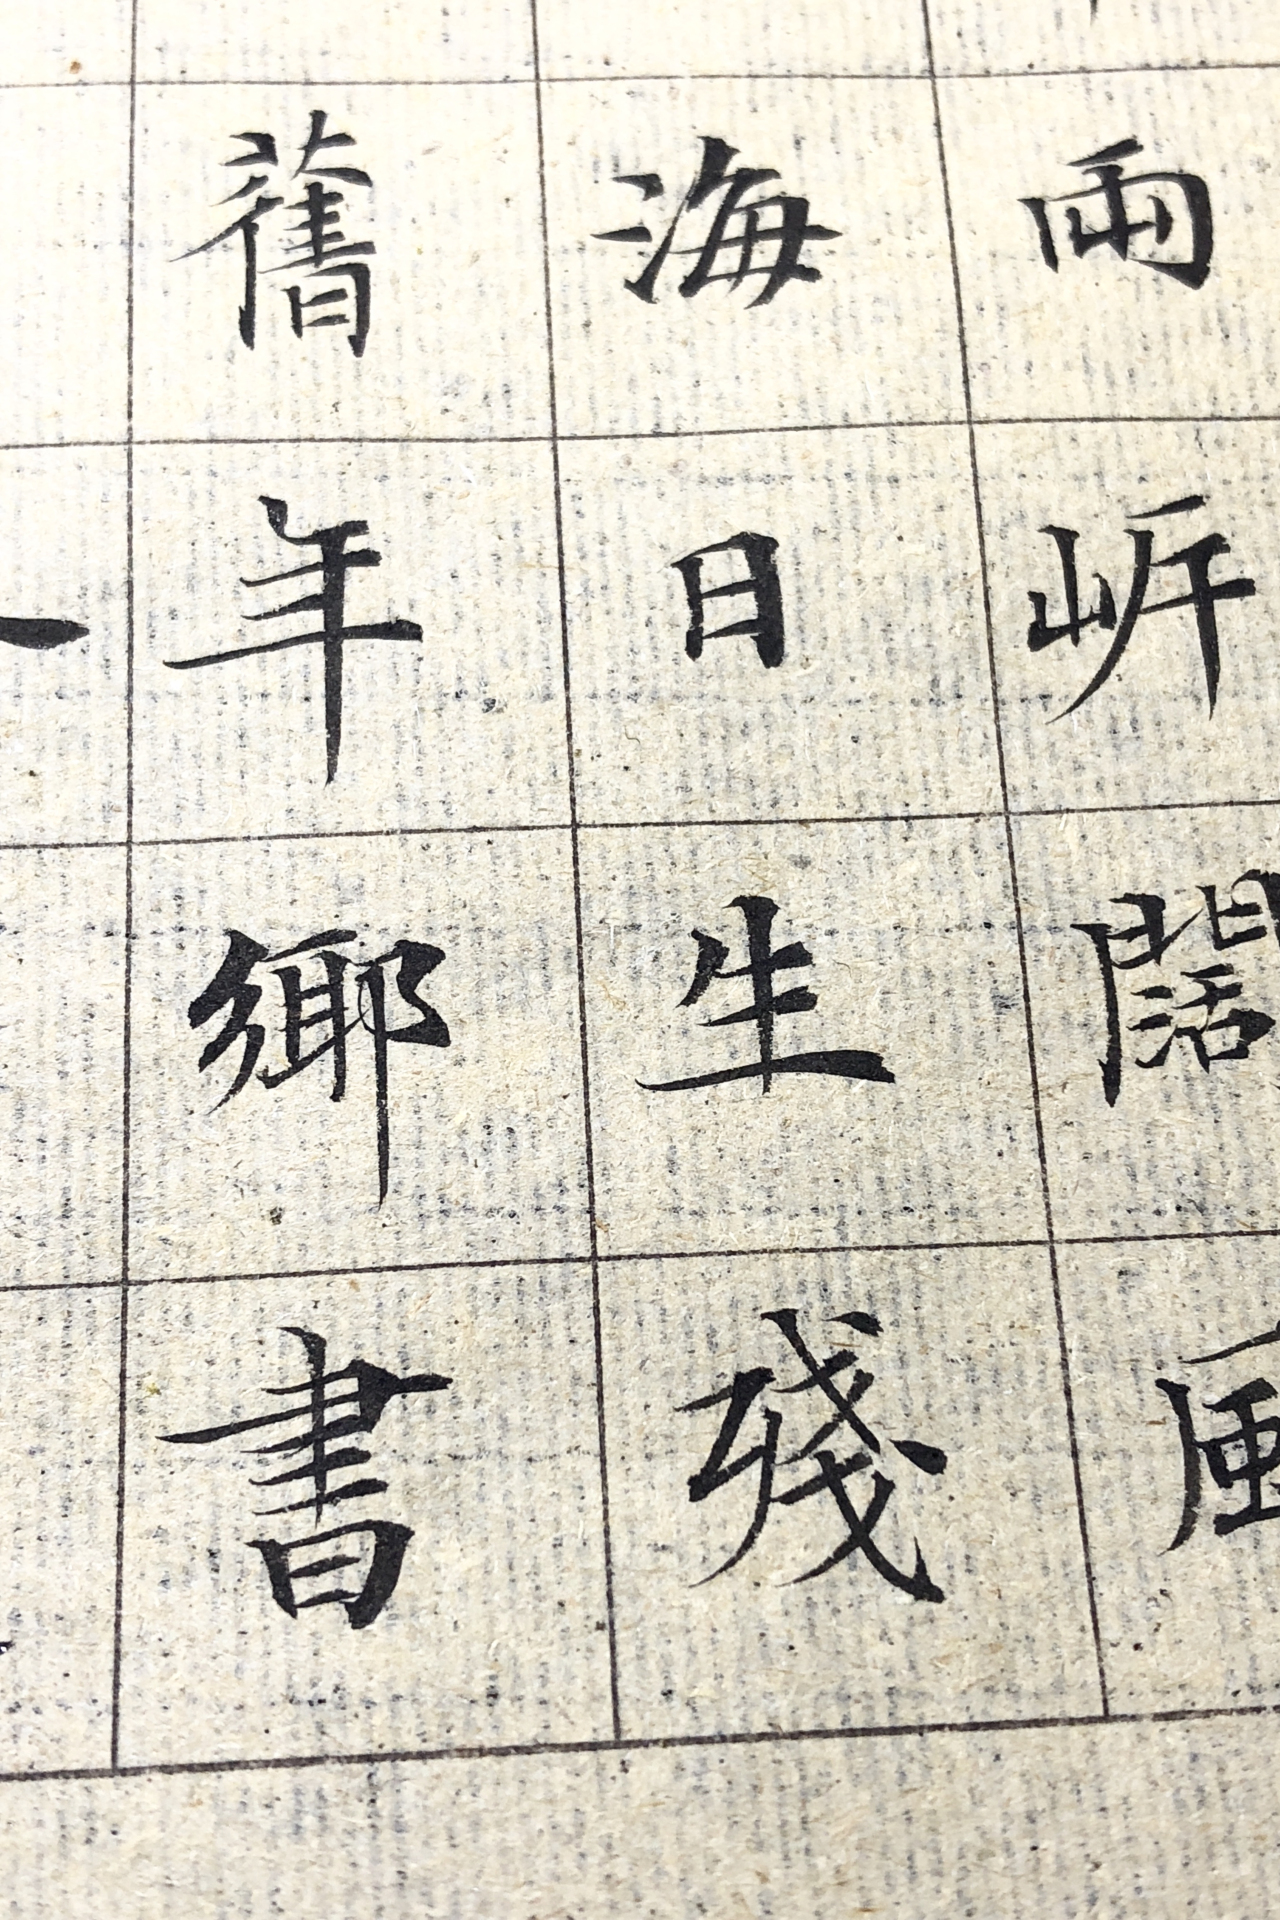 兩岸闊風
海日生殘
舊年鄉書